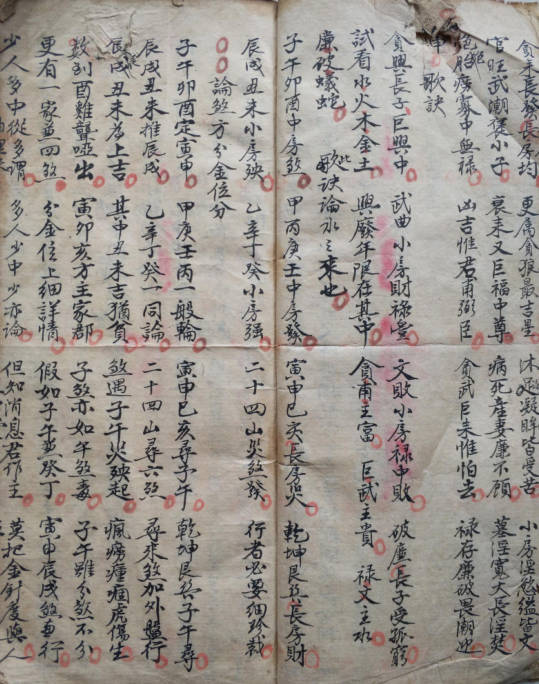 貪来長發長房均 更高貪狼最吉星 沐浴凝眸皆受苦 小房淫慾縊皆文
官旺武潮小子 衰来又巨福中尊 病死產妻廉不顧 墓淫寬大長淫焚
絶胎痨寡中無禄 凶吉惟君甫弼臣 貪武巨惟怕去 禄存廉破畏潮迎
歌訣
貪興長子巨興中 武曲小房財禄豊 文敗小房禄中敗 破廉長子受孤窮
試看水火木金土 興廢年限在其中 貪甫主富 巨武主貴 禄文主水
廉破蟻蛇 此歌訣論水之来也
子午卯酉中房煞 甲丙庚壬中房發 寅申巳亥長房災 乾坤艮巽長房財
辰戌丑未小房殃 乙辛丁癸小房强 二十四山災煞發 行者必要細珍裁
論煞方分金位分
子午卯酉定寅申 甲庚壬丙一般輪 寅申巳亥尋子午 乾坤艮巽子午尋
辰戌丑未推辰戌 乙辛丁癸一同論 二十四山尋六煞 尋来煞加外盤行
辰戌丑未為上吉 其中丑未吉猶貧 煞遇子午火殃起 瘋痨瘟虎傷生
數到酉雞聾啞出 寅卯亥方主家郡 子煞亦如午煞毒 子午雖分煞不分
更有一家無四煞 分金位上細詳情 假如子午無癸丁 寅申辰戌煞行
少人多中從多謂 多人少中少亦論 但知消息君作主 莫把金針度與人